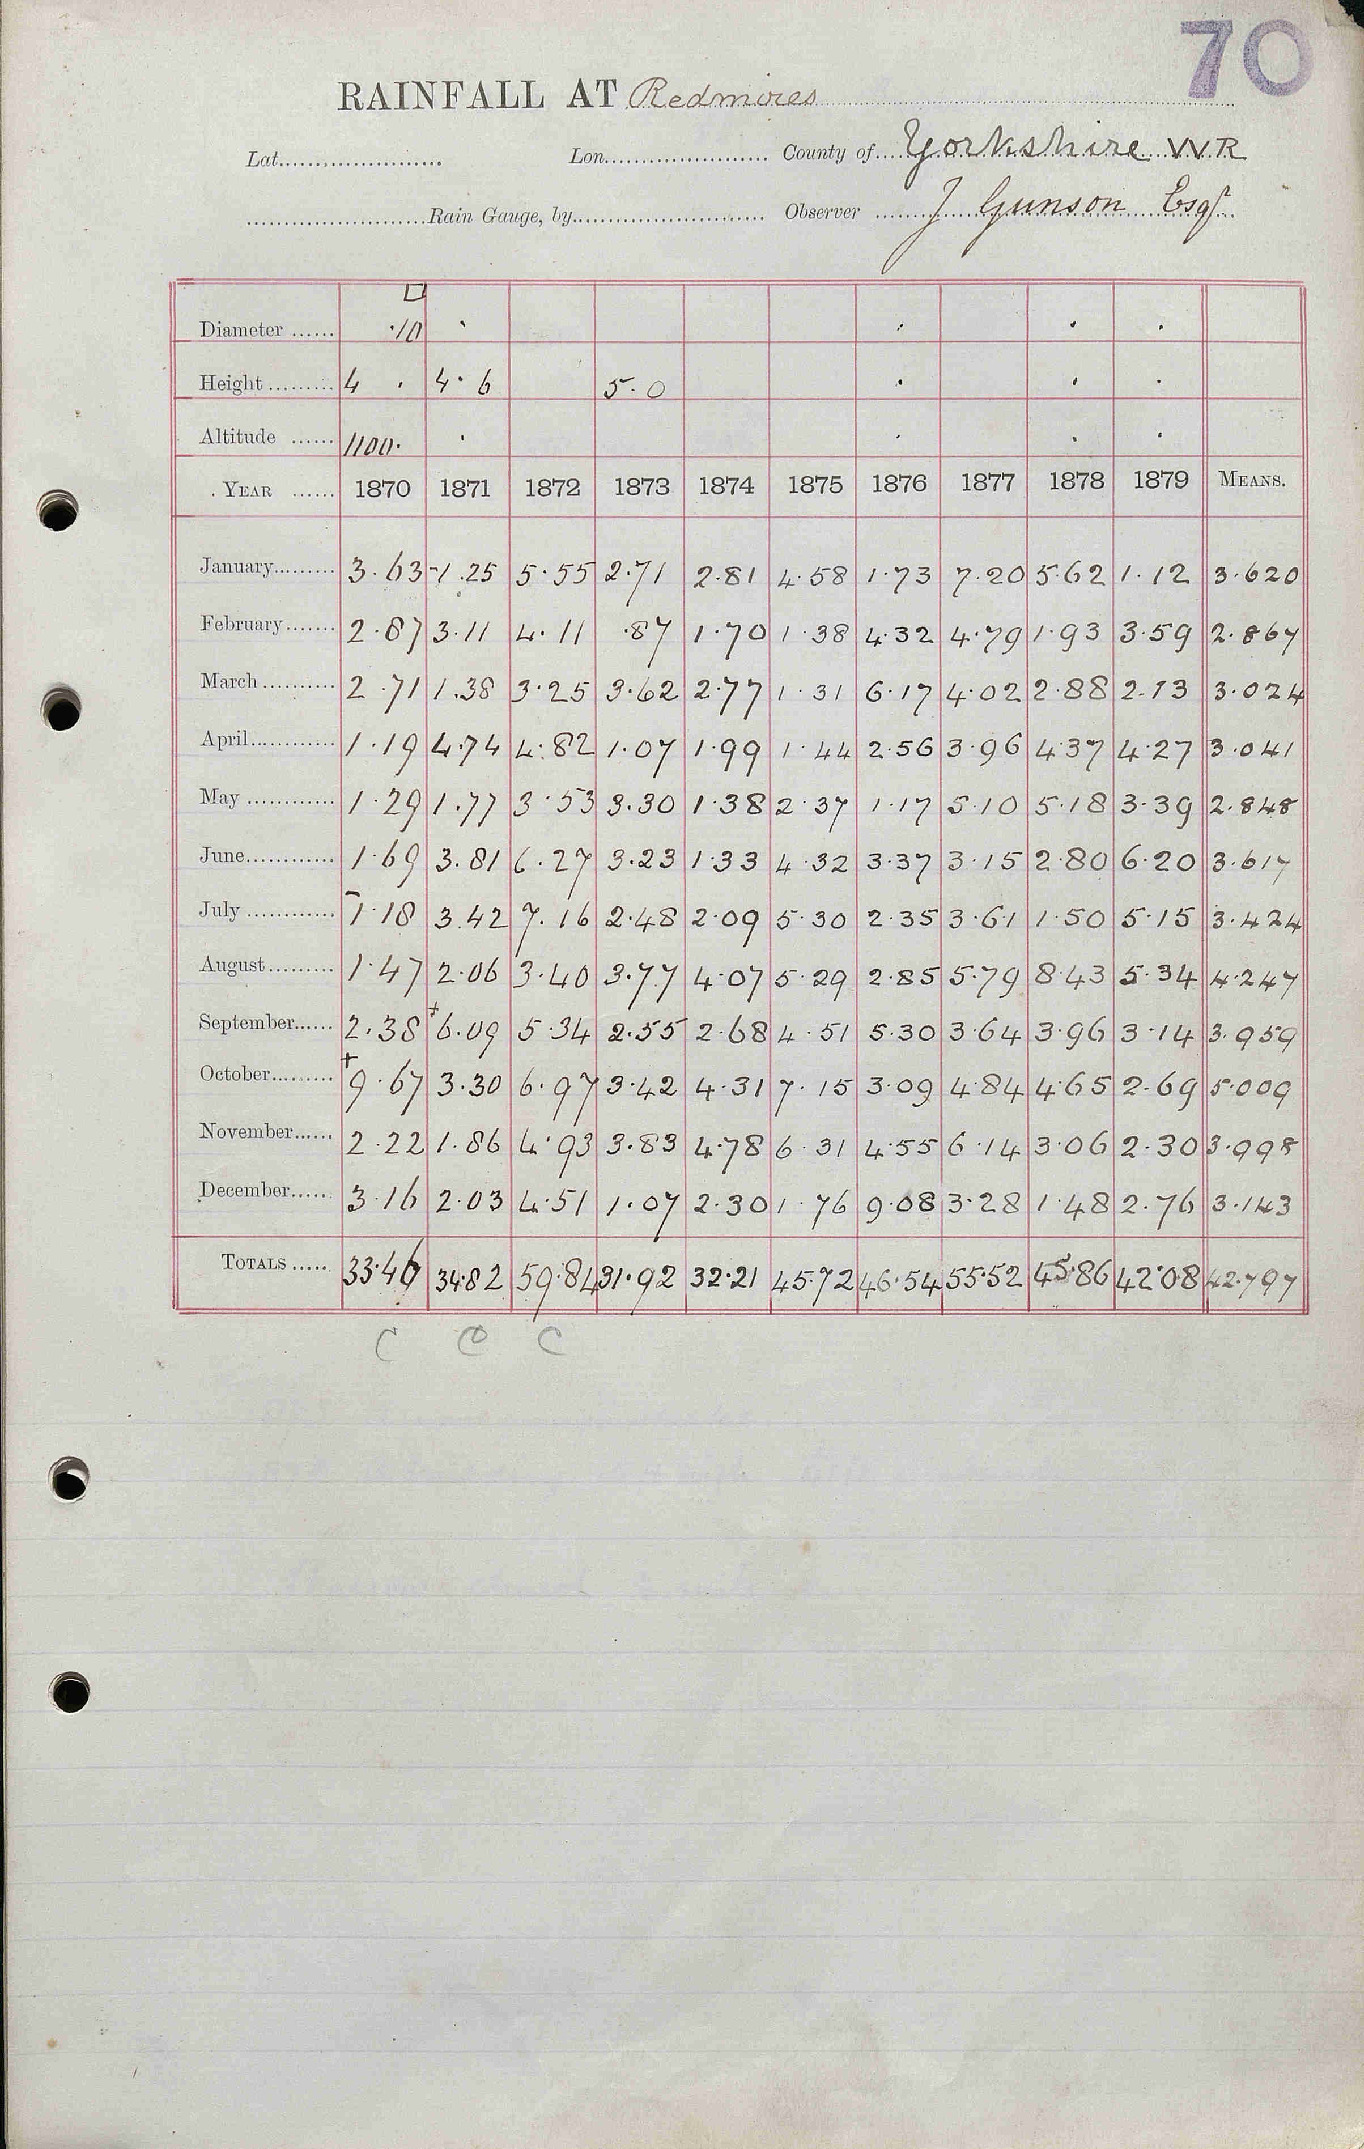 70
RAINFALL AT Redmires
Lat. Lon. County of Yorkshire W R
Rain Gauge, by Observer J Gunson Esqr
Diameter ...... □ ·10 · · · ·
Height ......... 4 · 4·6 5·0 · · ·
Altitude ...... 1100· · · · ·
YEAR ...... 1870 1871 1872 1873 1874 1875 1876 1877 1878 1879 MEANS.
January......... 3·63 -1.25 5·55 2·71 2·81 4·58 1·73 7·20 5·62 1·12 3·620
February....... 2·87 3·11 4·11 ·87 1·70 1·38 4·32 4·79 1·93 3·59 2·867
March.......... 2·71 1.38 3·25 3·62 2·77 1·31 6·17 4·02 2·88 2·13 3·024
April............ 1·19 4·74 4·82 1·07 1·99 1·44 2·56 3·96 4·37 4·27 3·041
May ............ 1·29 1·77 3·53 3·30 1·38 2·37 1·17 5·10 5·18 3·39 2·848
June............ 1·69 3·81 6·27 3·23 1·33 4·32 3·37 3·15 2·80 6·20 3·617
July ............ -1·18 3·42 7·16 2·48 2·09 5·30 2·35 3·61 1·50 5·15 3·424
August......... 1·47 2·06 3·40 3·77 4·07 5·29 2·85 5·79 8·43 5·34 4·247
September...... 2·38 +6·09 5·34 2·55 2·68 4·51 5·30 3·64 3·96 3·14 3·959
October......... +9·67 3·30 6·97 3·42 4·31 7·15 3·09 4·84 4·65 2·69 5·009
November...... 2·22 1·86 4·93 3·83 4·78 6·31 4·55 6·14 3·06 2·30 3·998
December...... 3·16 2·03 4·51 1·07 2·30 1·76 9·08 3·28 1·48 2·76 3·143
TOTALS ..... 33·46 34·82 59·84 31·92 32·21 45·72 46·54 55·52 45·86 42·08 42·797
C C C